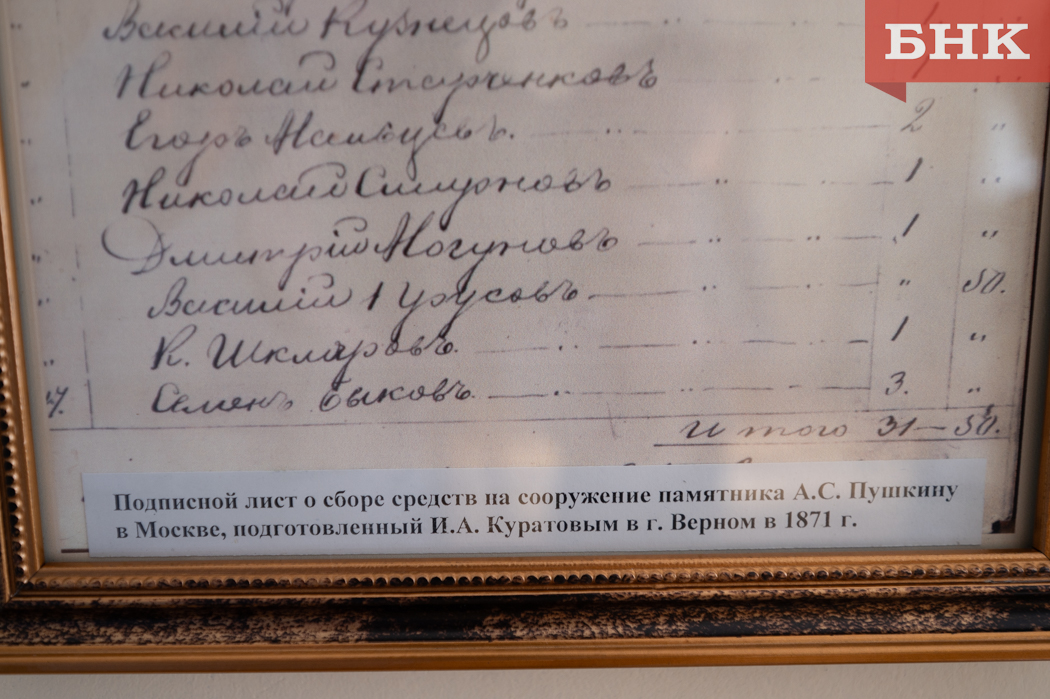 БНК
Василій Кузнецовъ 1 „
Николай Старченковъ 1 „
Егоръ 2 „
Николай Смирновъ 1 „
Дмитрій Могуновъ 1 „
Василій Урусовъ „ 50.
К. Шкляровъ. 1 „
Семенъ Быковъ. 3. „
Итого 31–50.
Подписной лист о сборе средств на сооружение памятника А.С. Пушкину
в Москве, подготовленный И.А. Куратовым в г. Верном в 1871 г.